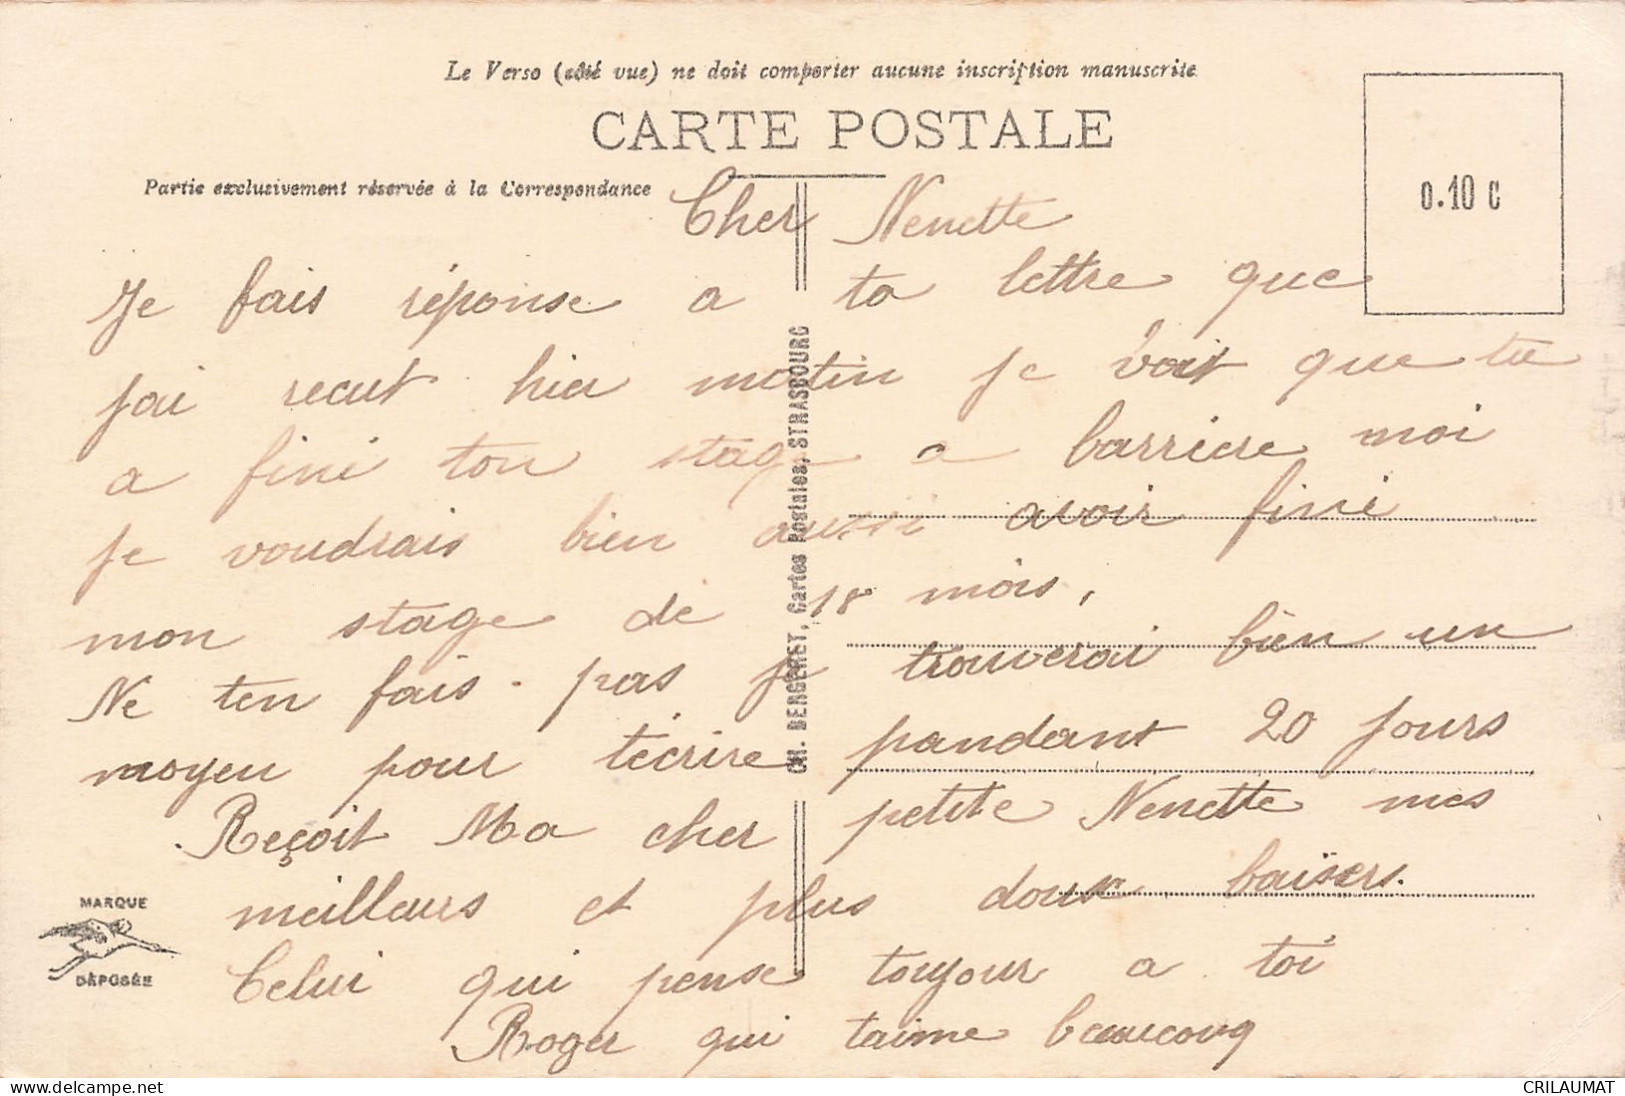 Le Verso (côté vue) ne doit comporter aucune inscription manuscrite
CARTE POSTALE
Partie exclusivement réservée à la Correspondance
0.10 C
Cher Nenette
Je fais réponse a ta lettre que
jai recut hier matin je voit que tu
a fini ton stage a barriere moi
je voudrais bien aussi avoir fini
mon stage de 18 mois,
Ne ten fais pas je trouverai bien un
moyen pour técrire pandant 20 jours
Reçoit Ma cher petite Nenette mes
meilleurs et plus doux baisers.
Celui qui pense toujour a toi
Roger qui taime beaucoup
CH. BERGERET, Cartes Postales, STRASBOURG
MARQUE
DÉPOSÉE
www.delcampe.net
CRILAUMAT